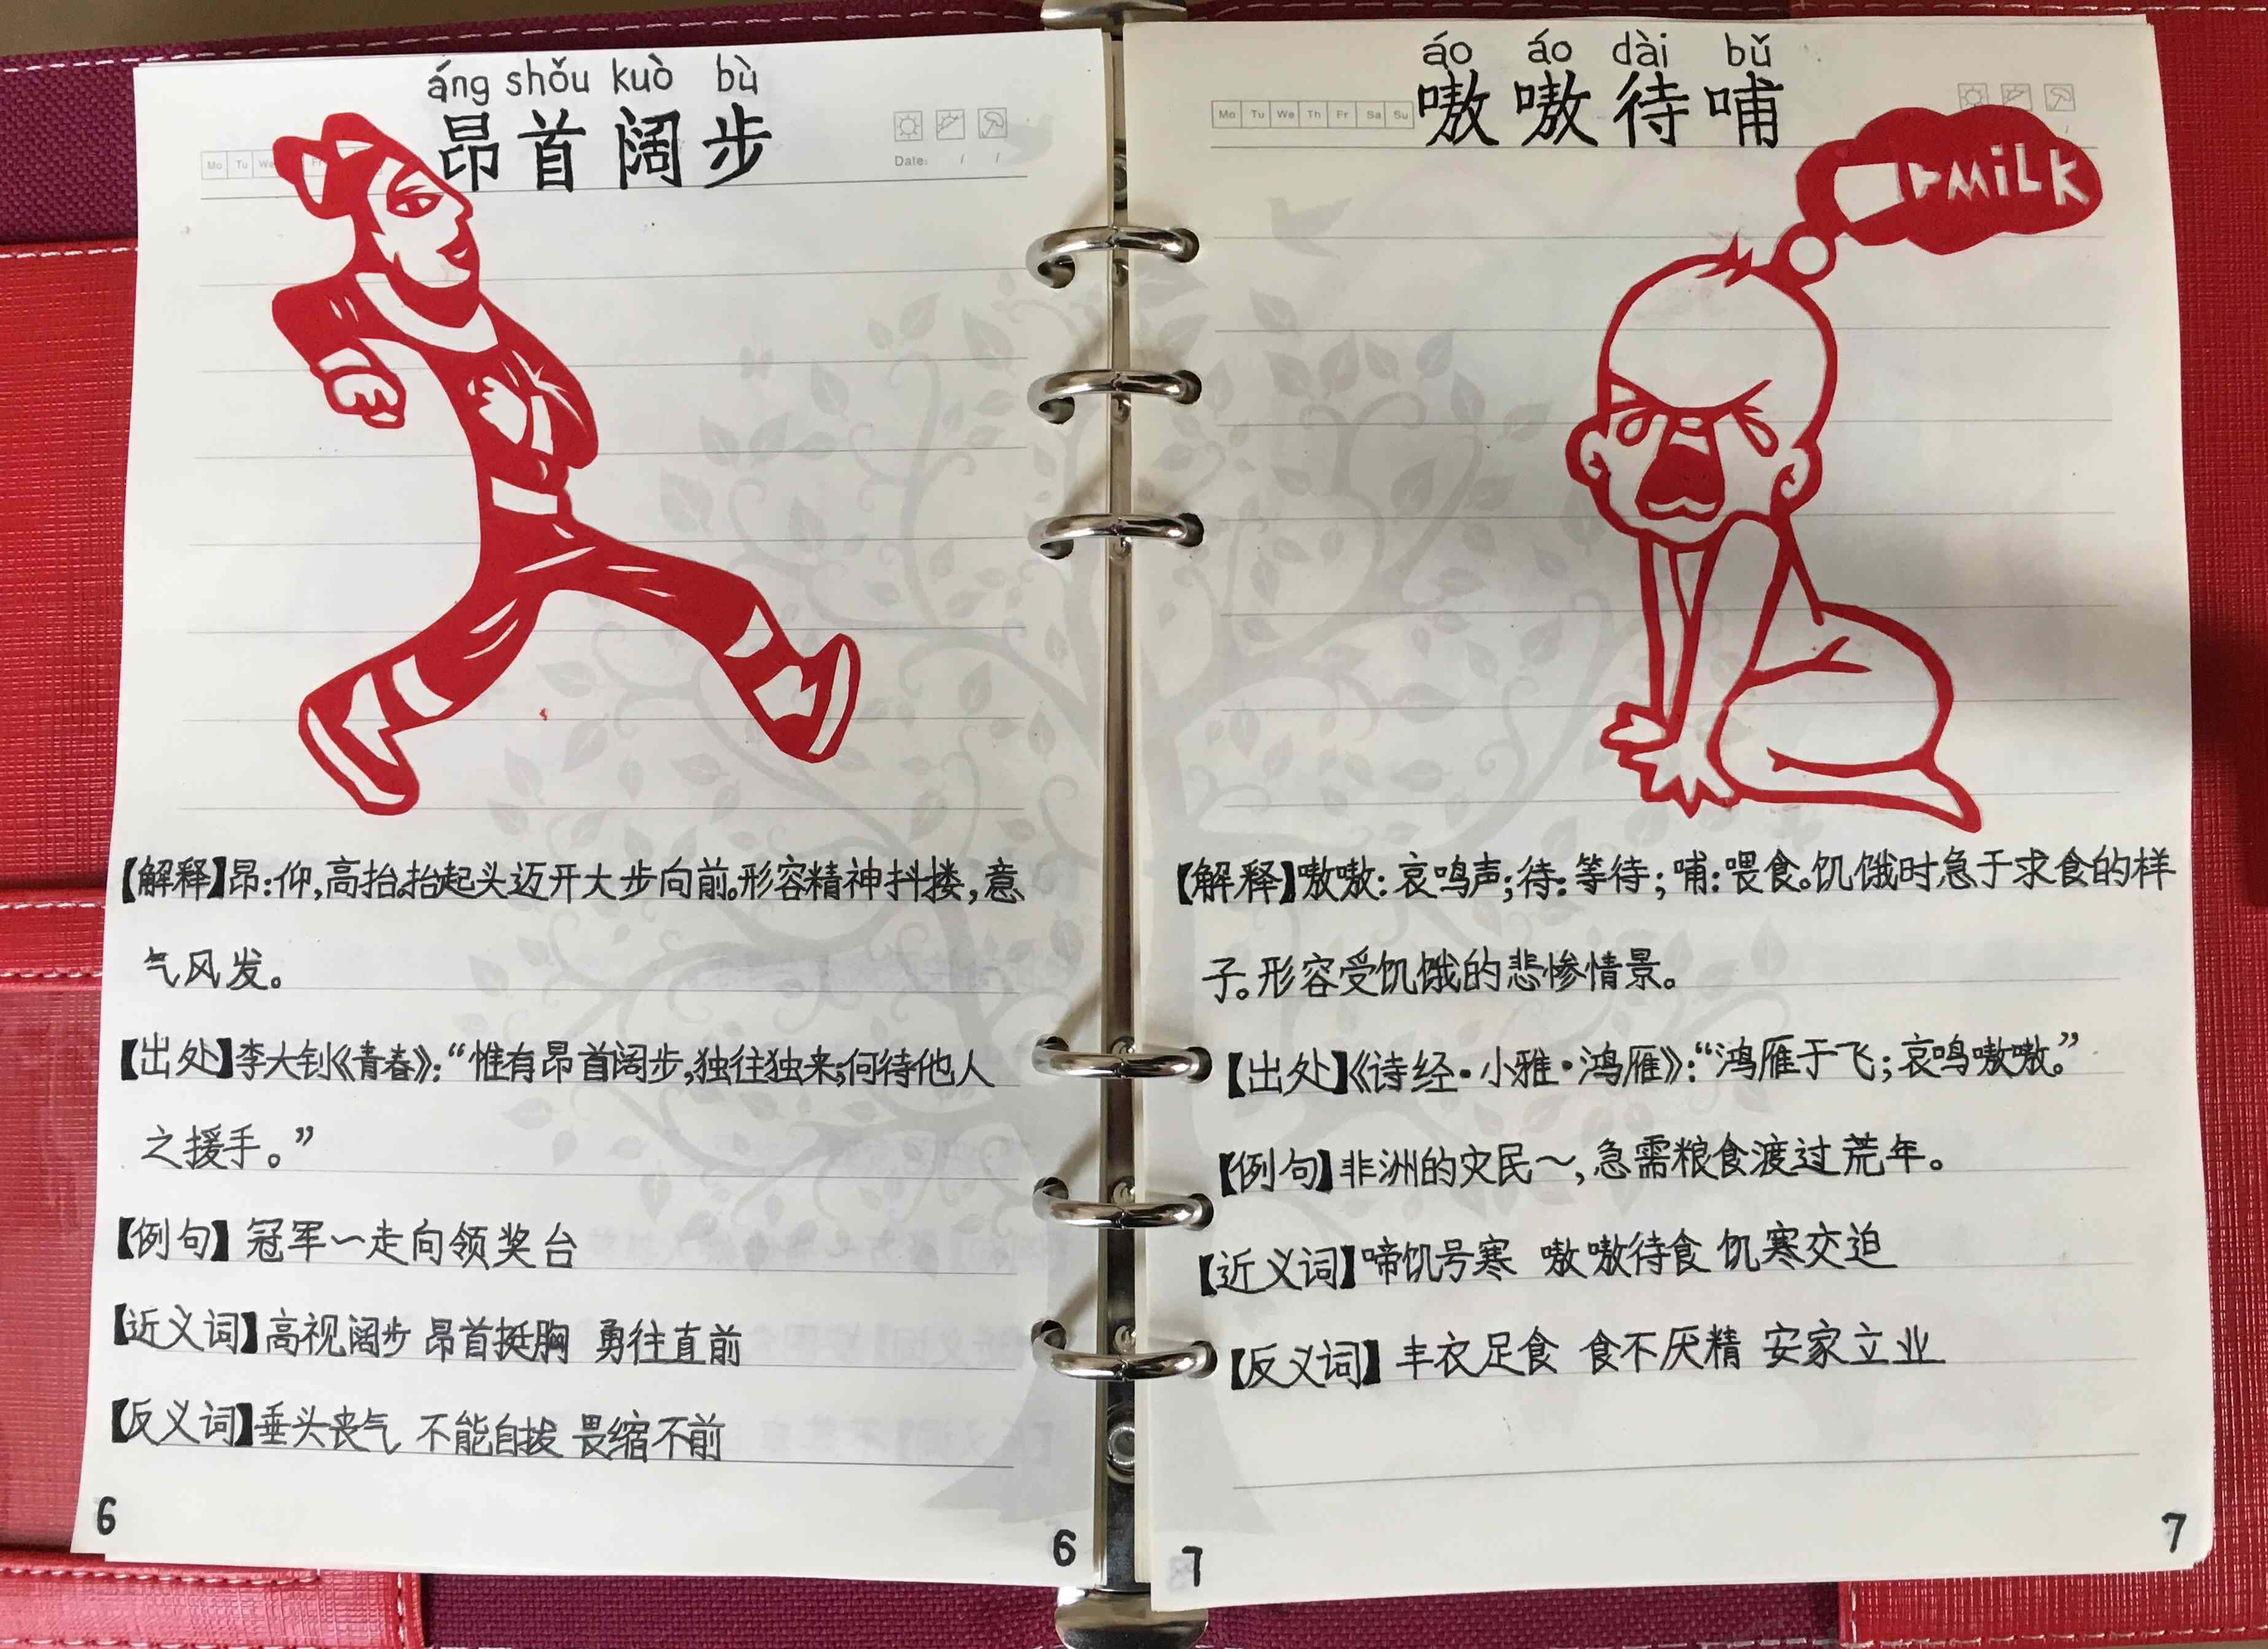 áng shǒu kuò bù
昂首阔步
Mo Tu We Fr
Date: / /
【解释】昂:仰,高抬。抬起头迈开大步向前。形容精神抖搂,意
气风发。
【出处】李大钊《青春》:“惟有昂首阔步,独往独来;何待他人
之援手。”
【例句】冠军~走向领奖台
【近义词】高视阔步 昂首挺胸 勇往直前
【反义词】垂头丧气 不能自拔 畏缩不前
6
6
áo áo dài bǔ
嗷嗷待哺
Mo Tu We Th Fr Sa Su
MiLK
【解释】嗷嗷:哀鸣声;待:等待;哺:喂食。饥饿时急于求食的样
子。形容受饥饿的悲惨情景。
【出处】《诗经·小雅·鸿雁》:“鸿雁于飞;哀鸣嗷嗷。”
【例句】非洲的灾民~,急需粮食渡过荒年。
【近义词】啼饥号寒 嗷嗷待食 饥寒交迫
【反义词】丰衣足食 食不厌精 安家立业
7
7